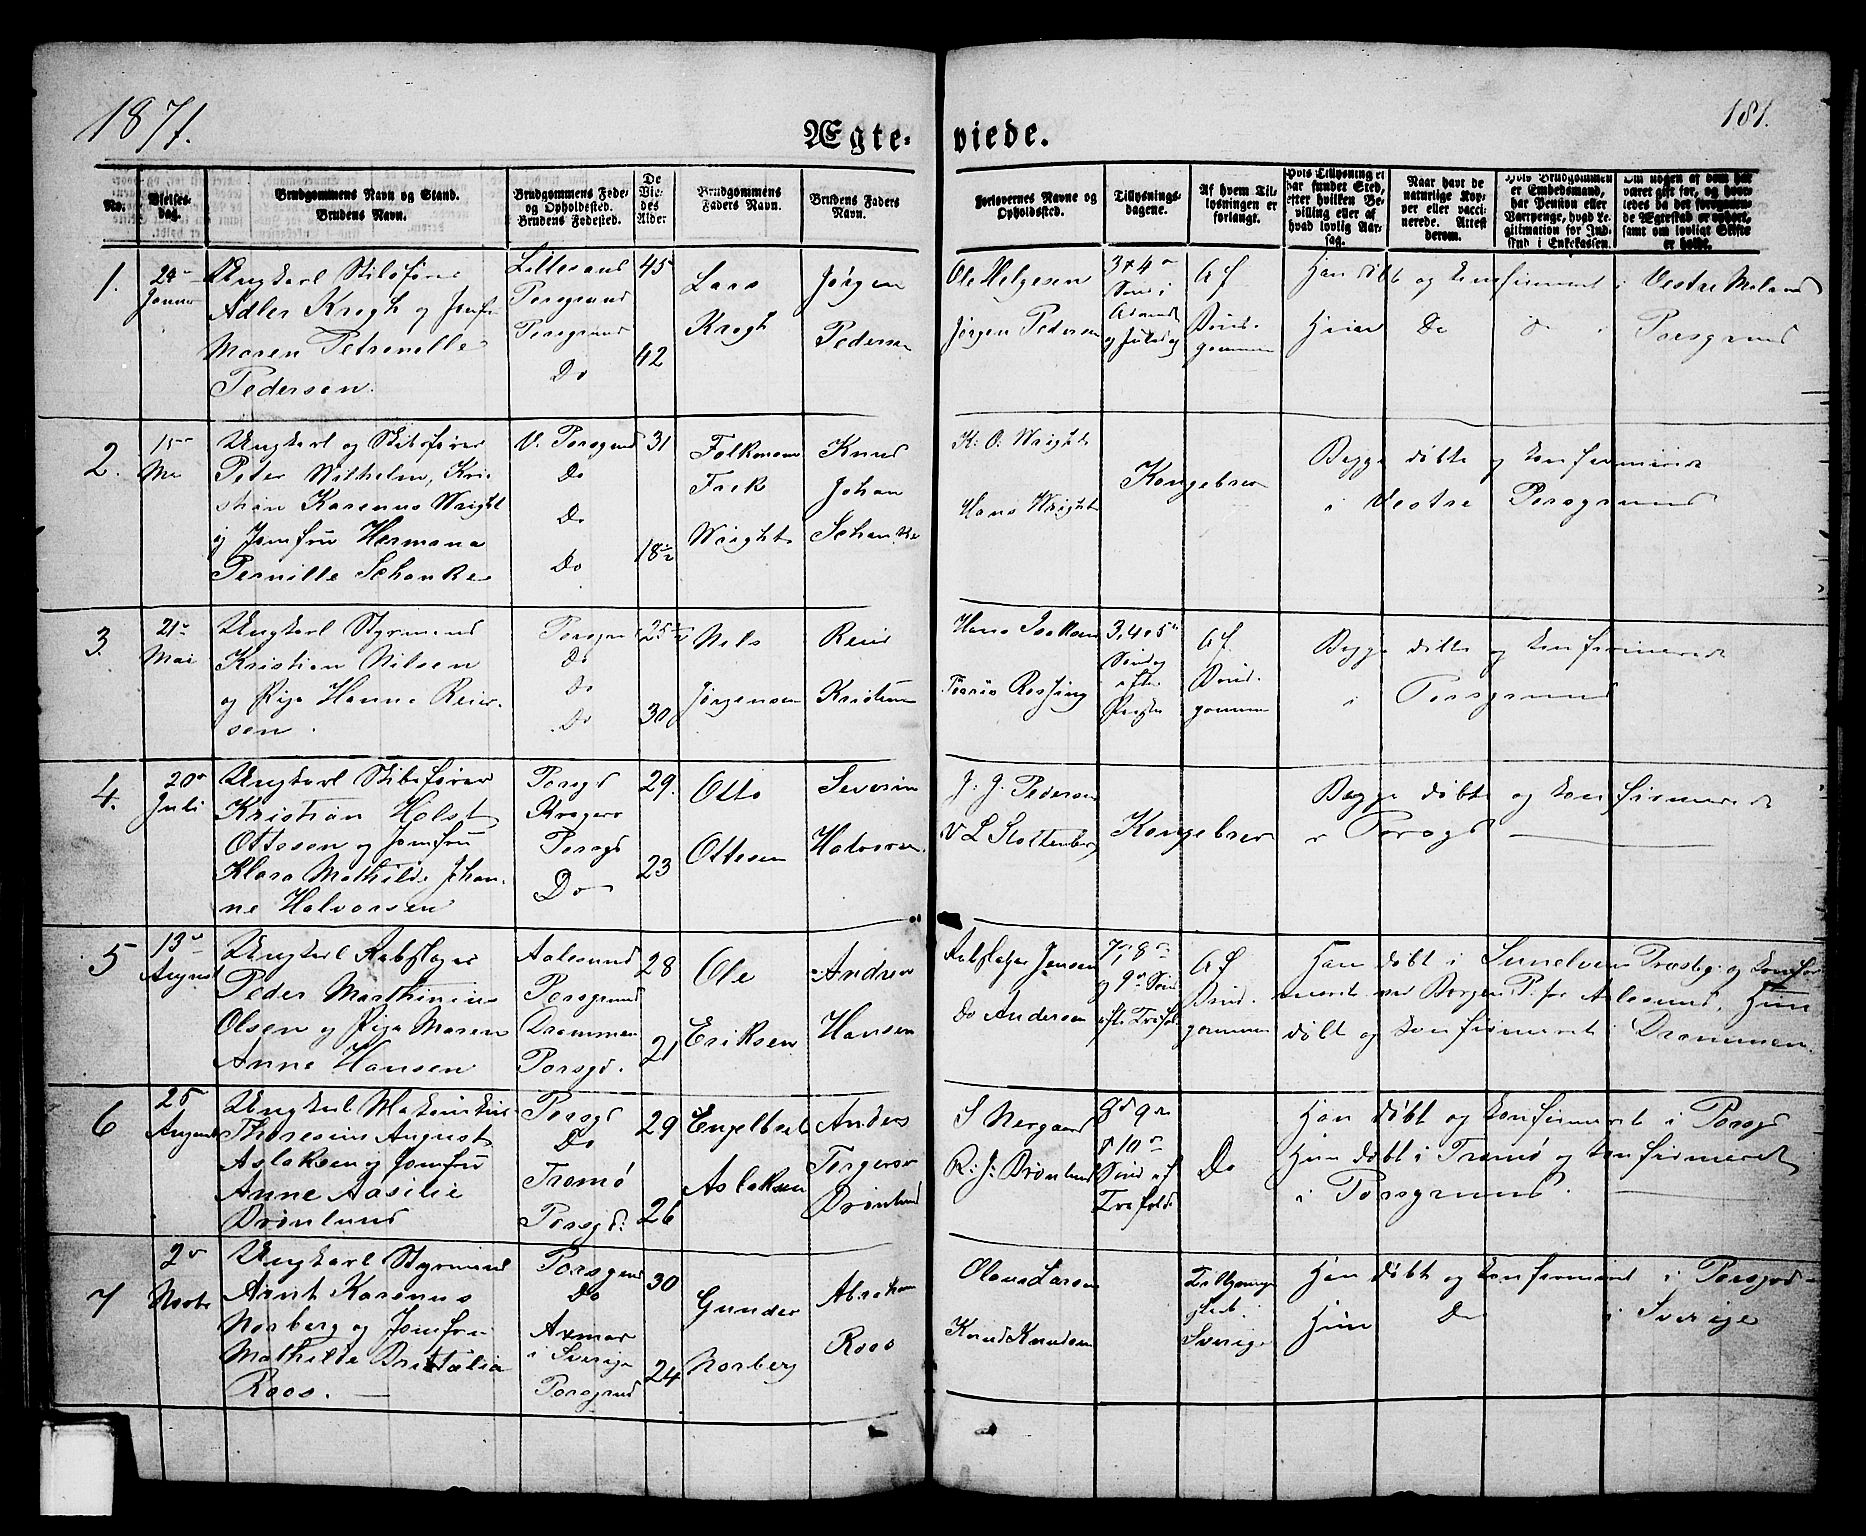 1871.
181.
Ægte-viede.
No.
Vielses-dag.
Brudgommens Navn og Stand.
Brudens Navn.
Brudgommens Føde-
og Opholdssted.
Brudens Fødested.
De
Vie-
des
Alder.
Brudgommens
Faders Navn.
Brudens Faders
Navn.
Forlovernes Navne og
Opholdssted.
Tillysnings-
dagene.
Af hvem Til-
lysningen er
forlangt.
Hvis Tillysning ei
har fundet Sted,
efter hvilken Be-
villing eller af
hvad lovlig Aar-
sag.
Naar havt de
naturlige Kop-
per eller vacci-
nerede. Attest
derom.
Hvis Brudgommen
er Embedsmand,
har Pension eller
Vartpenge, hvad Le-
gitimation for Ind-
skud i Enkekassen.
Om nogen af dem har
været gift før, og hvor-
ledes da det foregaaen-
de Ægteskab er ophørt,
samt om lovligt Skifte
er holdt.
1.
Ungkarl Skibsfører
Adler Krogh og Jomfr
Maren Petronelle
Pedersen.
Lillesand
Porsgrund
Porsgrund
Do
45
42
Lars
Krogh
Jørgen
Pedersen
Ole Helgesen
Jørgen Pedersen
3 & 4
Sønd i
Advent
og Juledag
Af
Brud-
gommen
Han døbt og konfirmeret i Vestre Moland
Hun Do do i Porsgrund
2.
15
Mai
Ungkarl og Skibsfører
Peter Wilhelm, Kri-
stian Karenus Wright
og Jomfru Hermana
Pernille Schanke
V. Porsgrund
Do
Do
Do
31
18½
Falkman
Friek
Wright
Knud
Johan
Schanke
K. O. Wright
Hans Wright
Kongebrev
Begge døbte og konfirmerede
i Vestre Porsgrund
3.
21
Mai
Ungkarl Styrmand
Kristian Nilsen
og Pige Hanne Reier-
sen.
Porsgr
Do
Do
Do
25½
30
Nils
Jørgensen
Reier
Kristens
Hans Isaksen
Rossing
3, 4 & 5
Søndag
efter
Paaske
Af
Brud-
gommen
Begge døbte og konfirmerede
i Porsgrund
4.
20
Juli
Ungkarl Skibsfører
Kristian Holst
Ottesen og Jomfru
Klara Mathilde Johan-
ne Halvorsen
Porsgd
Kragerø
Porsgd
Do
29.
23
Otto
Ottesen
Severin
Halvorsen
J. J. Pedersen
V L Stoltenberg
Kongebrev
Begge døbte og konfirmerede
i Porsgd
5
13
August
Ungkarl Rebslager
Peder Marthinius
Olsen og Pige Maren
Anne Hansen
Aalesund
Porsgrund
Drammen
Porsgd.
28
21
Ole
Eriksen
Andreas
Hansen
Rebslager Jensen
Do Andersen
7, 8
og 9 Sønd
eft. Trefold
Af
Brud-
gommen
Han døbt i Sunelvens Præstegj. og konfir-
meret ved Borgen P. for Aalesund. Hun
døbt og konfirmeret i Drammen.
6
25
August
Ungkarl Maskinist
Thoresius August
Aslaksen og Jomfru
Anne Aasilie
Brønlund
Porsgd
Do
Tromø
Porsgd.
29
26
Engelbret
Aslaksen
Anders
Torgersen
Brønlund
S Nergaard
R. J. Brønlund
8 9
& 10
Sønd ef
Trefold.
Do
Han døbt og konfirmeret i Porsgd
Hun døbt i Tromø og konfirmeret
i Porsgrund.
7
2
Novbr
Ungkarl Styrmand
Arnt Karenus
Norberg og Jomfru
Mathilde Brittalia
Roos.
Porsgrund
Do
Axmar
i Sverige
Porsgrund
30
24
Gunder
Norberg
Abraham
Roos
Olaus Larsen
Knud Knudsen
Tillysning
skeet i
Sverige
Han døbt og konfirmeret i Porsgd
Hun Do i Sverige